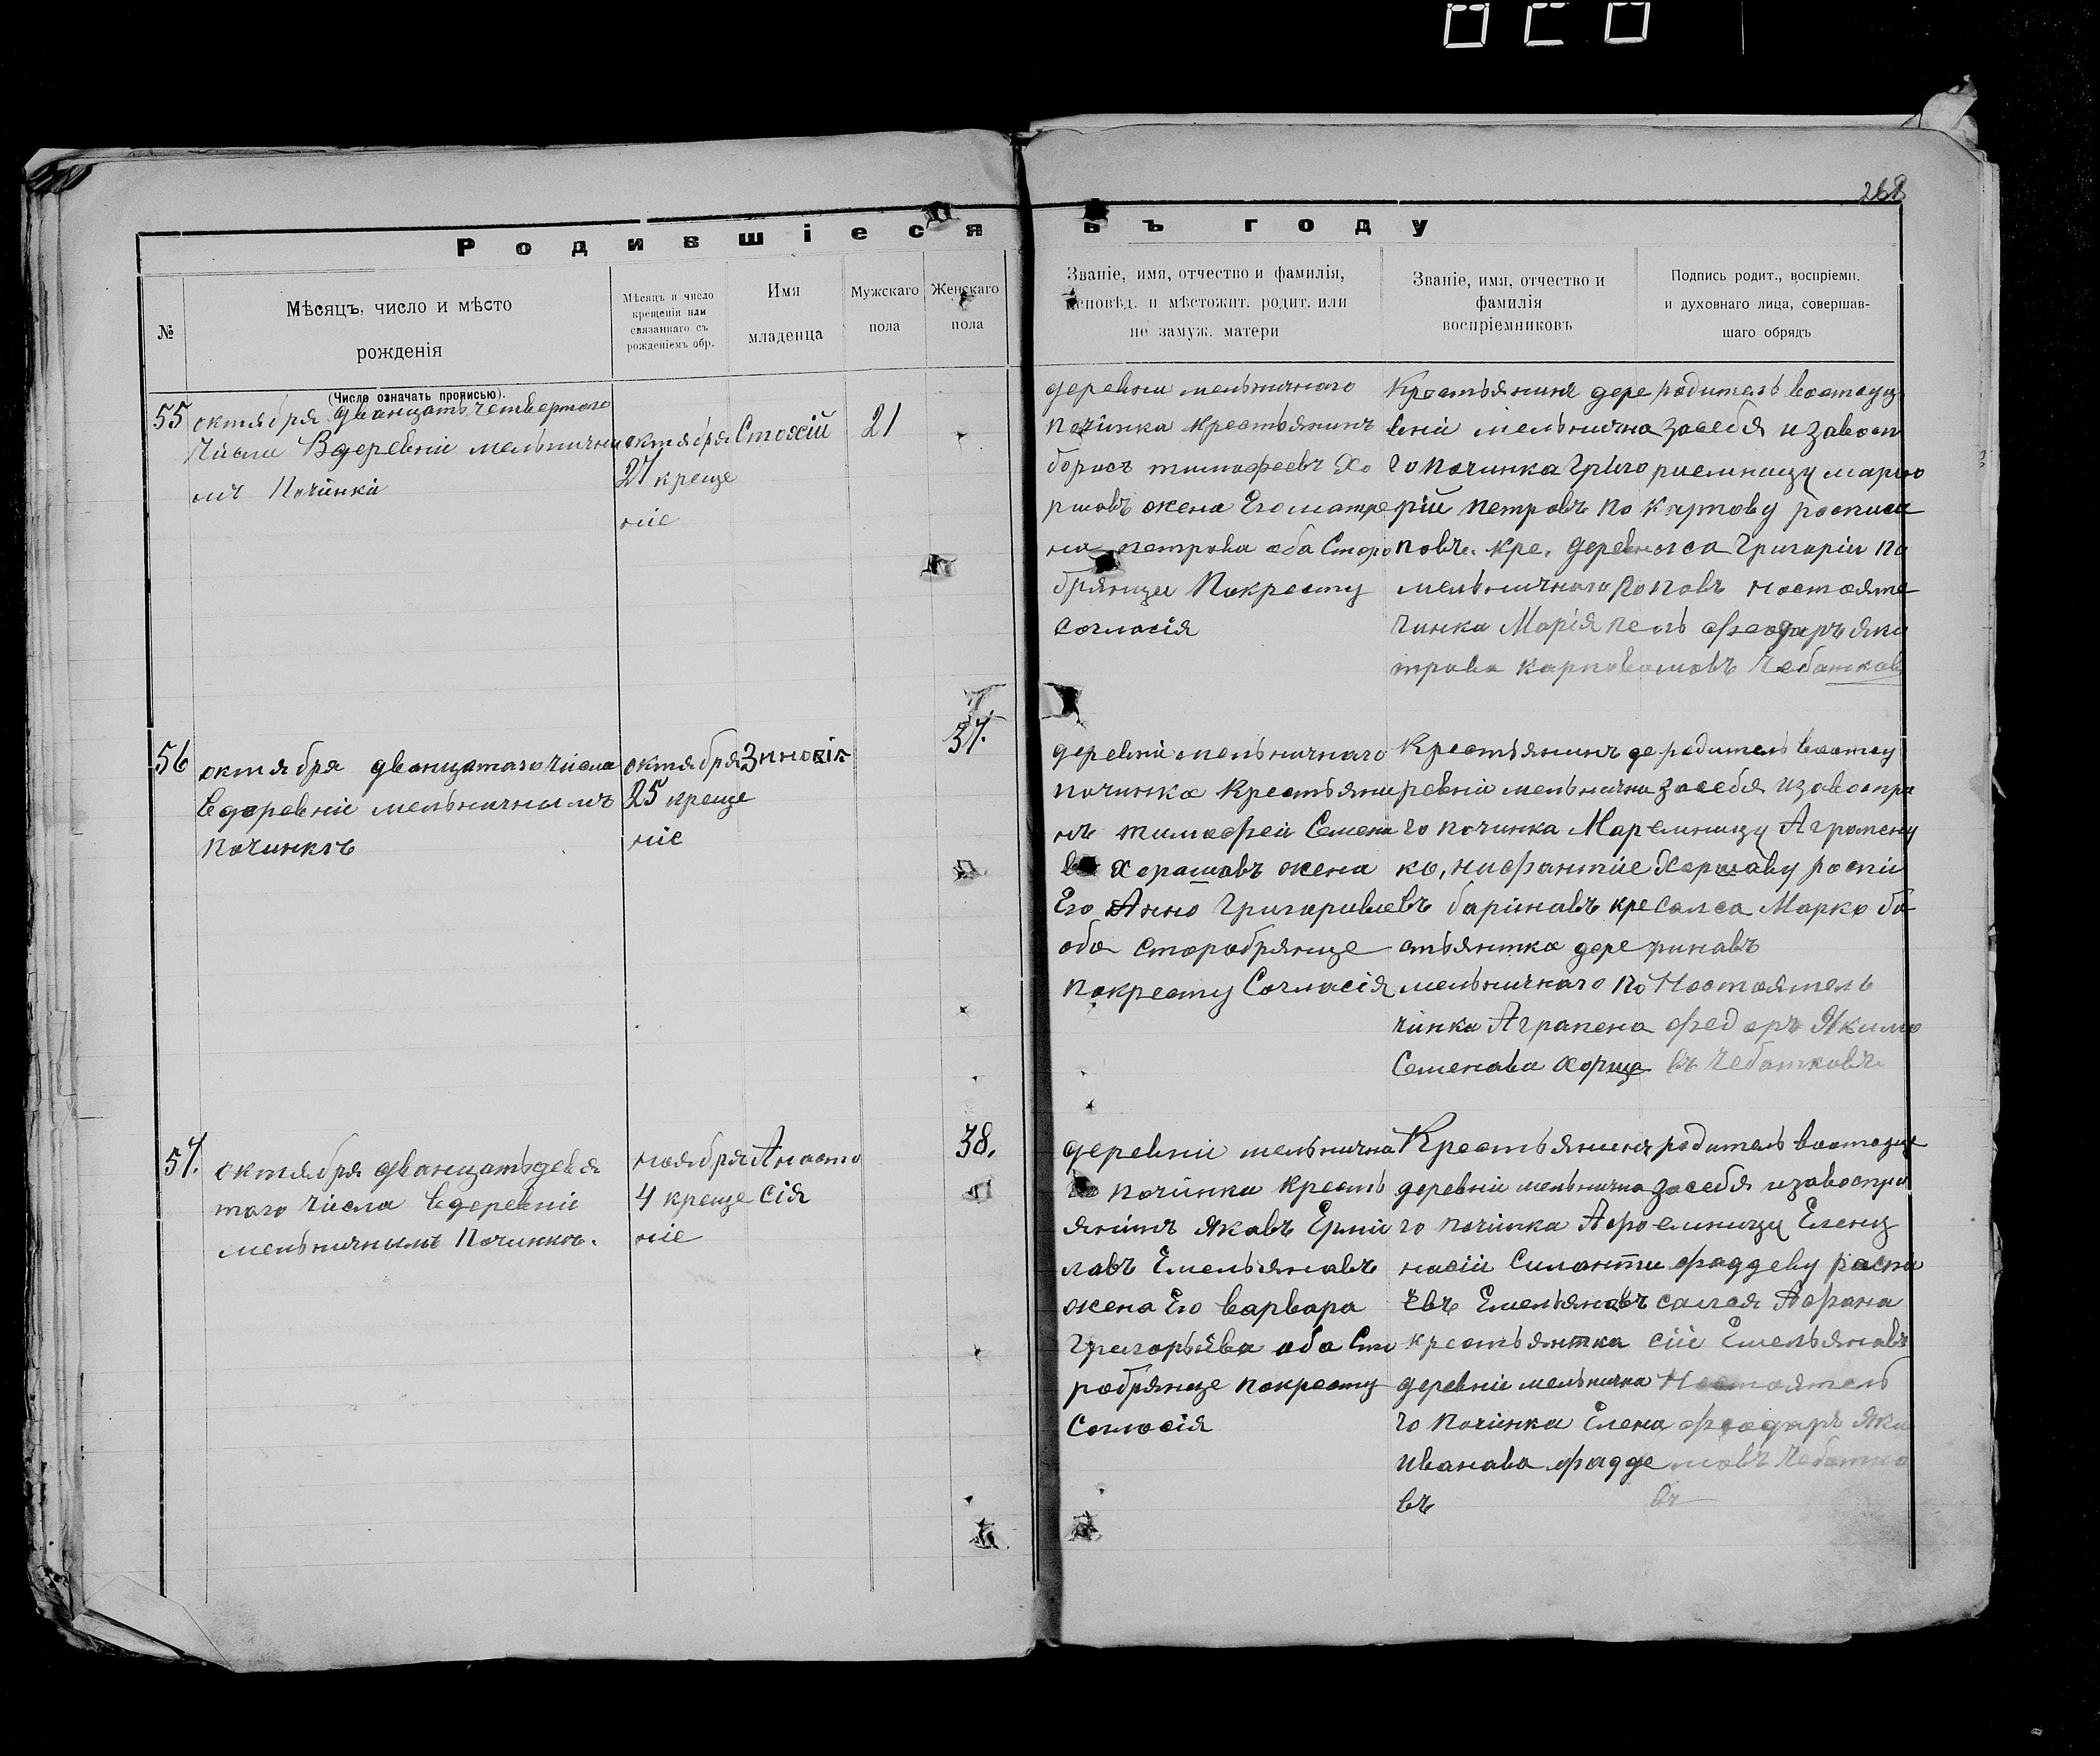 268
Родившіеся въ году
№
Мѣсяцъ, число и мѣсто
рожденія
(Число означать прописью).
Мѣсяцъ и число
крещенія или
связаннаго съ
рожденіемъ обр.
Имя
младенца
Мужскаго
пола
Женскаго
пола
Званіе, имя, отчество и фамилія,
исповѣд. и мѣстожит. родит. или
не замуж. матери
Званіе, имя, отчество и
фамилія
воспріемниковъ
Подпись родит., воспріемн.
и духовнаго лица, совершав-
шаго обрядъ
55
октября дванцать четвертого
Числа Вдеревніи мельнични
мъ Починкі
октября
27 креще
ніе
21
деревни мельничнаго
починка крестьянинъ
борисъ тимофеевъ Хо
ршовъ жена Его матре
на петрова оба Старо
брянцы Покресту
Согласія
Крестьянинъ дере
вніи мельнична
го починка Григо
рій петровъ По
повъ. кре. деревн
мельничнаго по
чинка Марія пе
трова карпова
родитель востоущ
засебя изавосп
риемницу марию
карпову росписа
лса Григорій По
повъ настояте
ль феодаръ яки
мовъ Чеботков
56
октября дванцатаго числа
Вдеревніи мельничнымъ
починкъ
октября
25 креще
ніе
37.
деревни мельничнаго
починка Крестьяни
нъ тимофеи Семено
Хорашовъ жена
Его Анно Григориев
оба старобрянце
покресту Согласія
Крестьянинъ де
ревніи мельнични
го починка Мар
ко, ниофантіе
въ баріновъ кре
стьянтка дере
мельничнаго по
чинка Аграпена
Семенава хорша
родитель востоу
засебя изавоспри
емницу Аграпену
Хоршаву роспи
салса Марко ба
риновъ
Настоятель
федоръ Якимо
въ Чеботковъ
57.
октября дванцатьдевя
того числа Вдеревніи
мельничнымъ Починкъ.
ноября
4 креще
ніе
Анаста
сія
38.
деревніи мельнична
починки Кресть
янинъ Яковъ Ермі
лавъ Емельянавъ
жена Его варвара
Григорьева оба Ста
робрянце покресту
Согласія
Крестьянинъ
деревніи мельнична
го починка Афо
насіи Силанти
евъ Емельяновъ
крестьянтка
деревніи мельнична
го починка Елена
иванава фадде
въ
родитель востоуще
засебя изавоспри
емницу Елену
фаддеву распи
салса Афана
сіи Емельянавъ
Настоятель
феодаръ Яки
мовъ Чеботко
въ